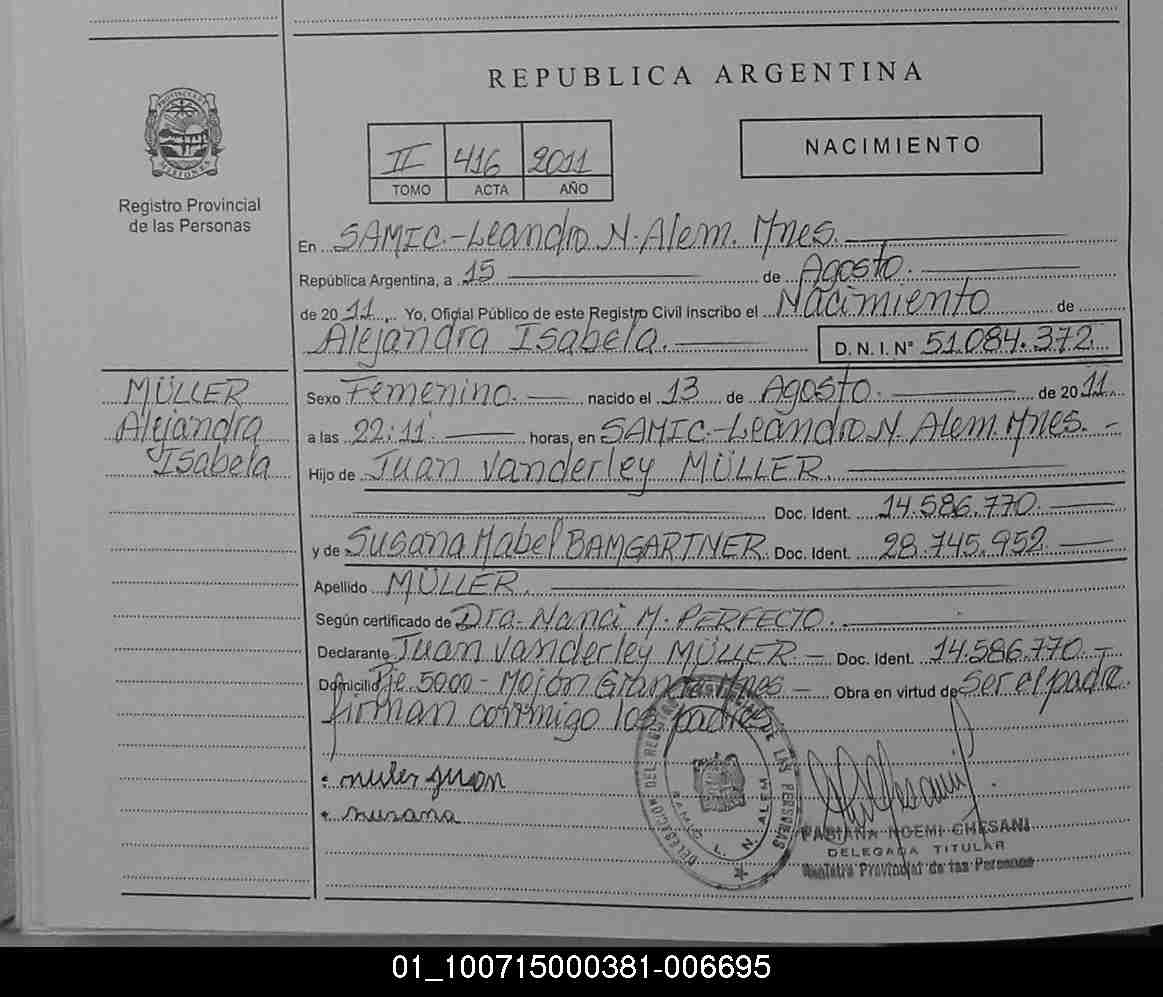 REPUBLICA ARGENTINA
II 416 2011
TOMO ACTA AÑO
NACIMIENTO
PROVINCIA DE MISIONES
Registro Provincial
de las Personas
En SAMIC.-Leandro N. Alem. Mnes.
República Argentina, a 15 de Agosto.
de 2011, Yo, Oficial Público de este Registro Civil inscribo el Nacimiento de
Alejandra Isabela. D. N. I. N° 51.084.372
MÜLLER
Alejandra
Isabela
Sexo Femenino. nacido el 13 de Agosto. de 2011.
a las 22:11 horas, en SAMIC.-Leandro N. Alem Mnes.-
Hijo de Juan Vanderley MÜLLER.
Doc. Ident. 14.586.770.
y de Susana Mabel BAMGARTNER Doc. Ident. 28.745.952
Apellido MÜLLER.
Según certificado de Dra. Nanci M. PERFECTO.
Declarante Juan Vanderley MÜLLER.- Doc. Ident. 14.586.770.-
Domicilio Pje. 5000 - Mojón Grande Mnes - Obra en virtud de Ser el padre.
firman conmigo los padres
muler juan
susana
DELEGACION DEL REGISTRO PROVINCIAL DE LAS PERSONAS
SAMIC L. N. ALEM
FABIANA NOEMI CHESANI
DELEGADA TITULAR
Registro Provincial de las Personas
01_100715000381-006695